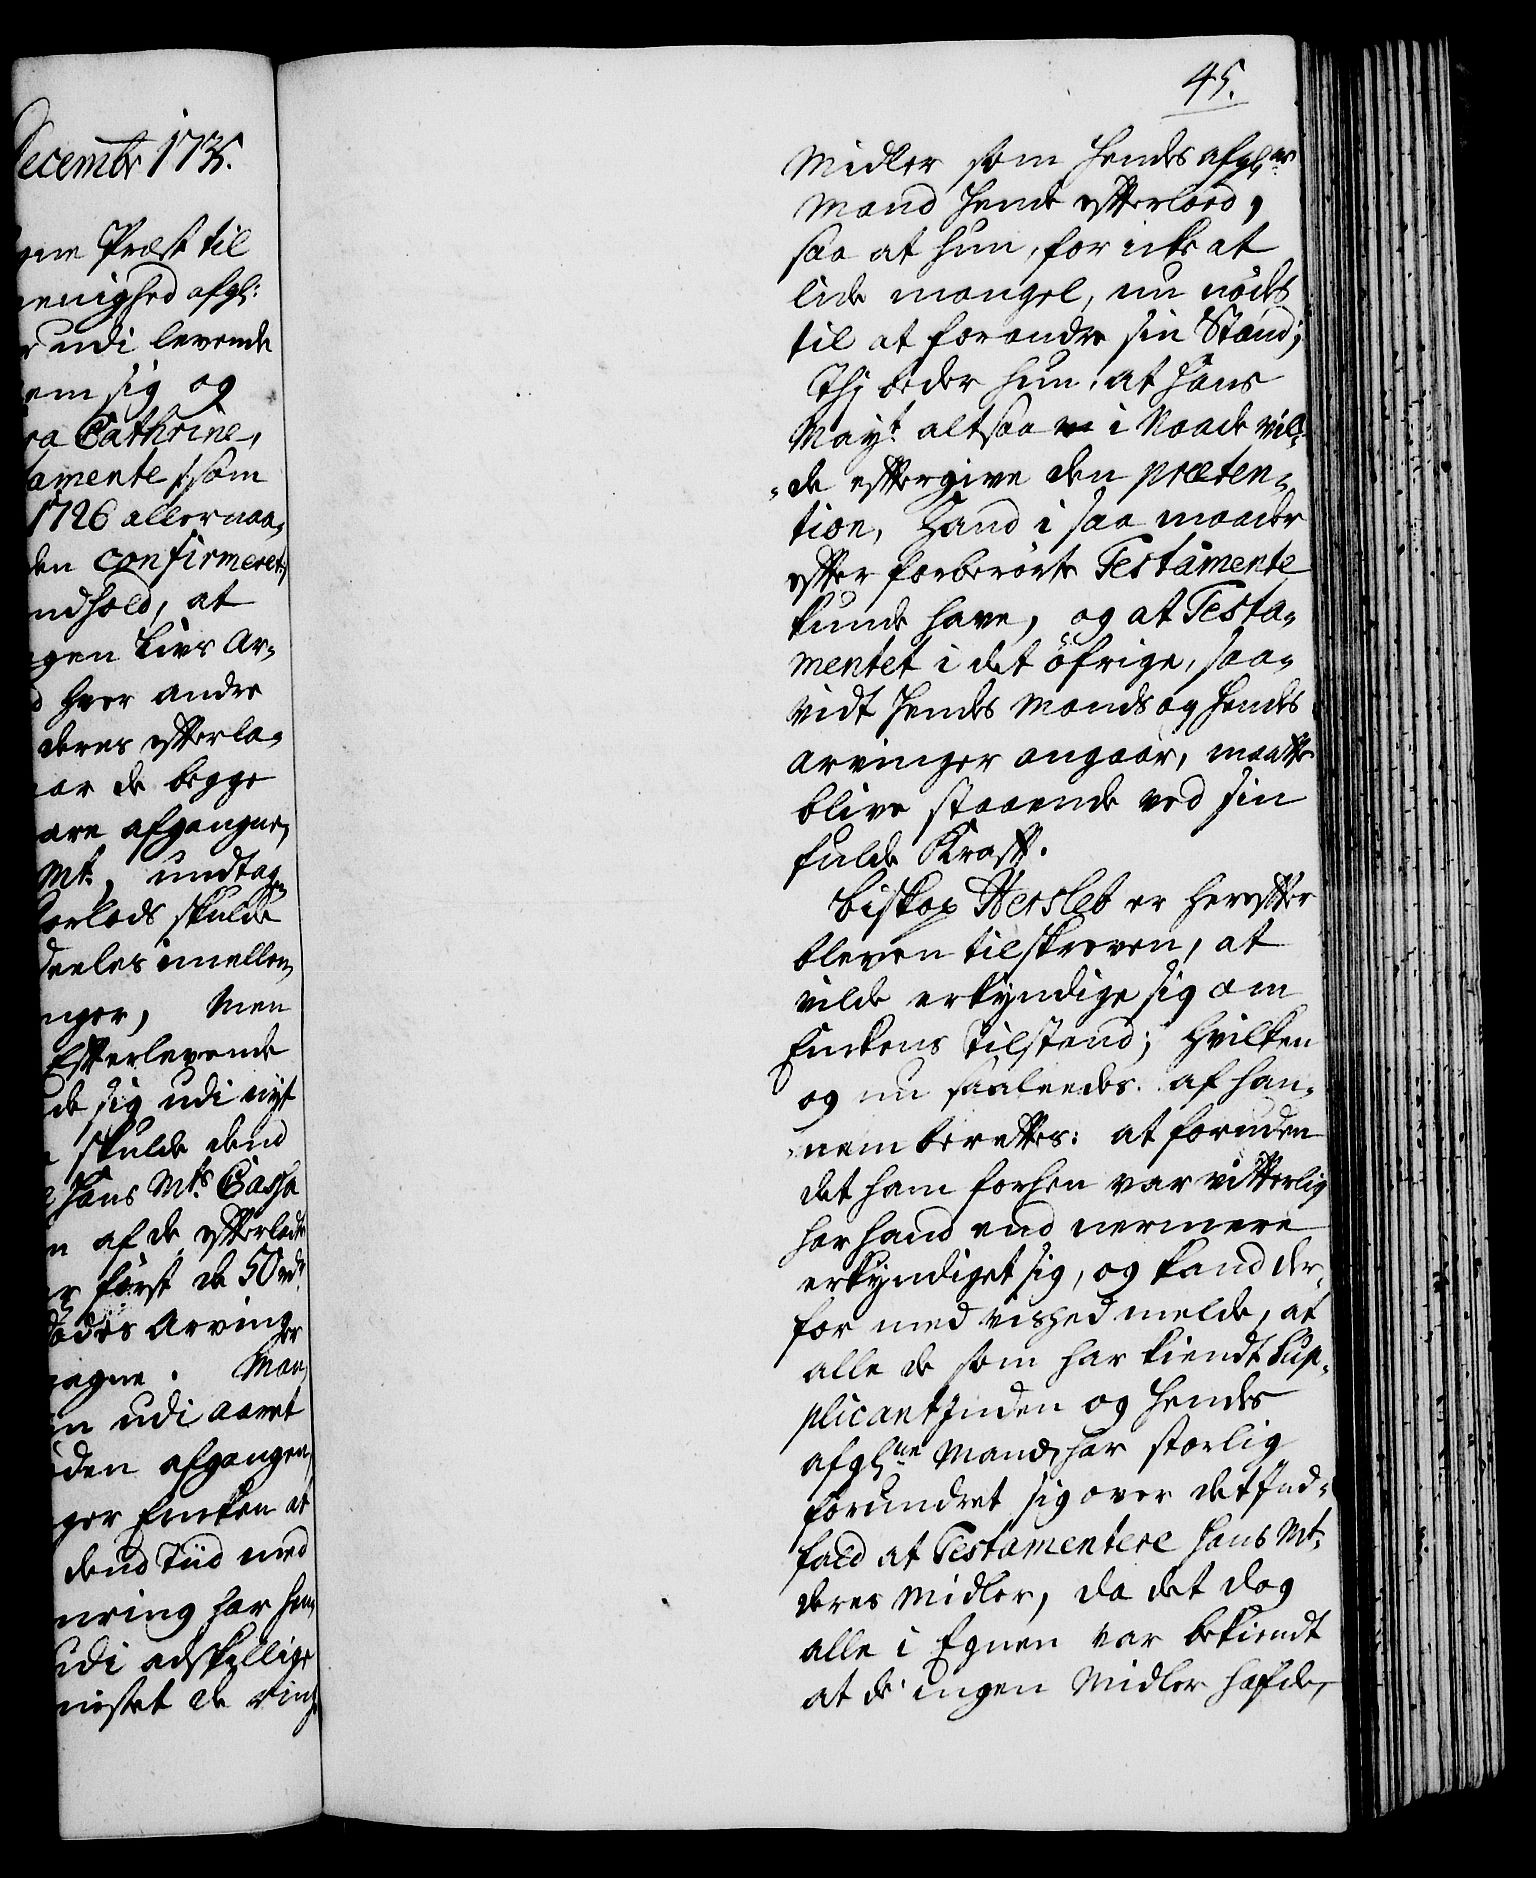 45.
December 1735.
gne Præst til
enighed afgl:
udi levende
em sig og
ra Cathrine,
tamente /:som
1726 allernaa-
den confirmeret:/
ndhold, at
gen Livs Ar-
hver andre
deres efterla-
ar de begge
are afgangne,
Mt:, undtagen
orlods skulde
deeles imellem
nger, Men
Efterlevende
de sig udi nyt
skulde dend
Hans Mts Cassa
n af de efterladte
r først de 50 rdr
ødes Arvinger
agne. Man
n udi Aaret
den afgangen,
ger Encken at
dend Tiid med
nring har hen-
udi adskillige
mistet de ring-
Midler som hendes afgl:ne
Mand hende efterlood,
saa at hun, for icke at
lide mangel, nu nödes
til at forandre sin Stand;
Thj beder hun, at Hans
Mayt altsaa i Naade vil-
de eftergive den præten-
tion, Hand i saa maader
efter forberörte Testamente
kunde have, og at Testa-
mentet i det öfrige, saa-
vidt hendes Mands og hendes
Arvinger angaar, maatte
blive staaende ved sin
fulde Kraft.
Biskop Hersleb er herefter
bleven tilskreven, at
vilde erkyndige sig om
Enckens Tilstand; Hvilken
og nu saaleedes af han-
nem berettes: at foruden
det ham forhen var vitterlig
har hand end nermere
erkyndiget sig, og kand der-
for med vished melde, at
alle de som har kiendt Sup-
plicantinden og hendes
afgl:ne Mand, har storlig
forundret sig over det Ind-
fald at Testamentere Hans Mt:
deres Midler, da det dog
alle i Egnen var bekiendt
at de ingen Midler hafde,